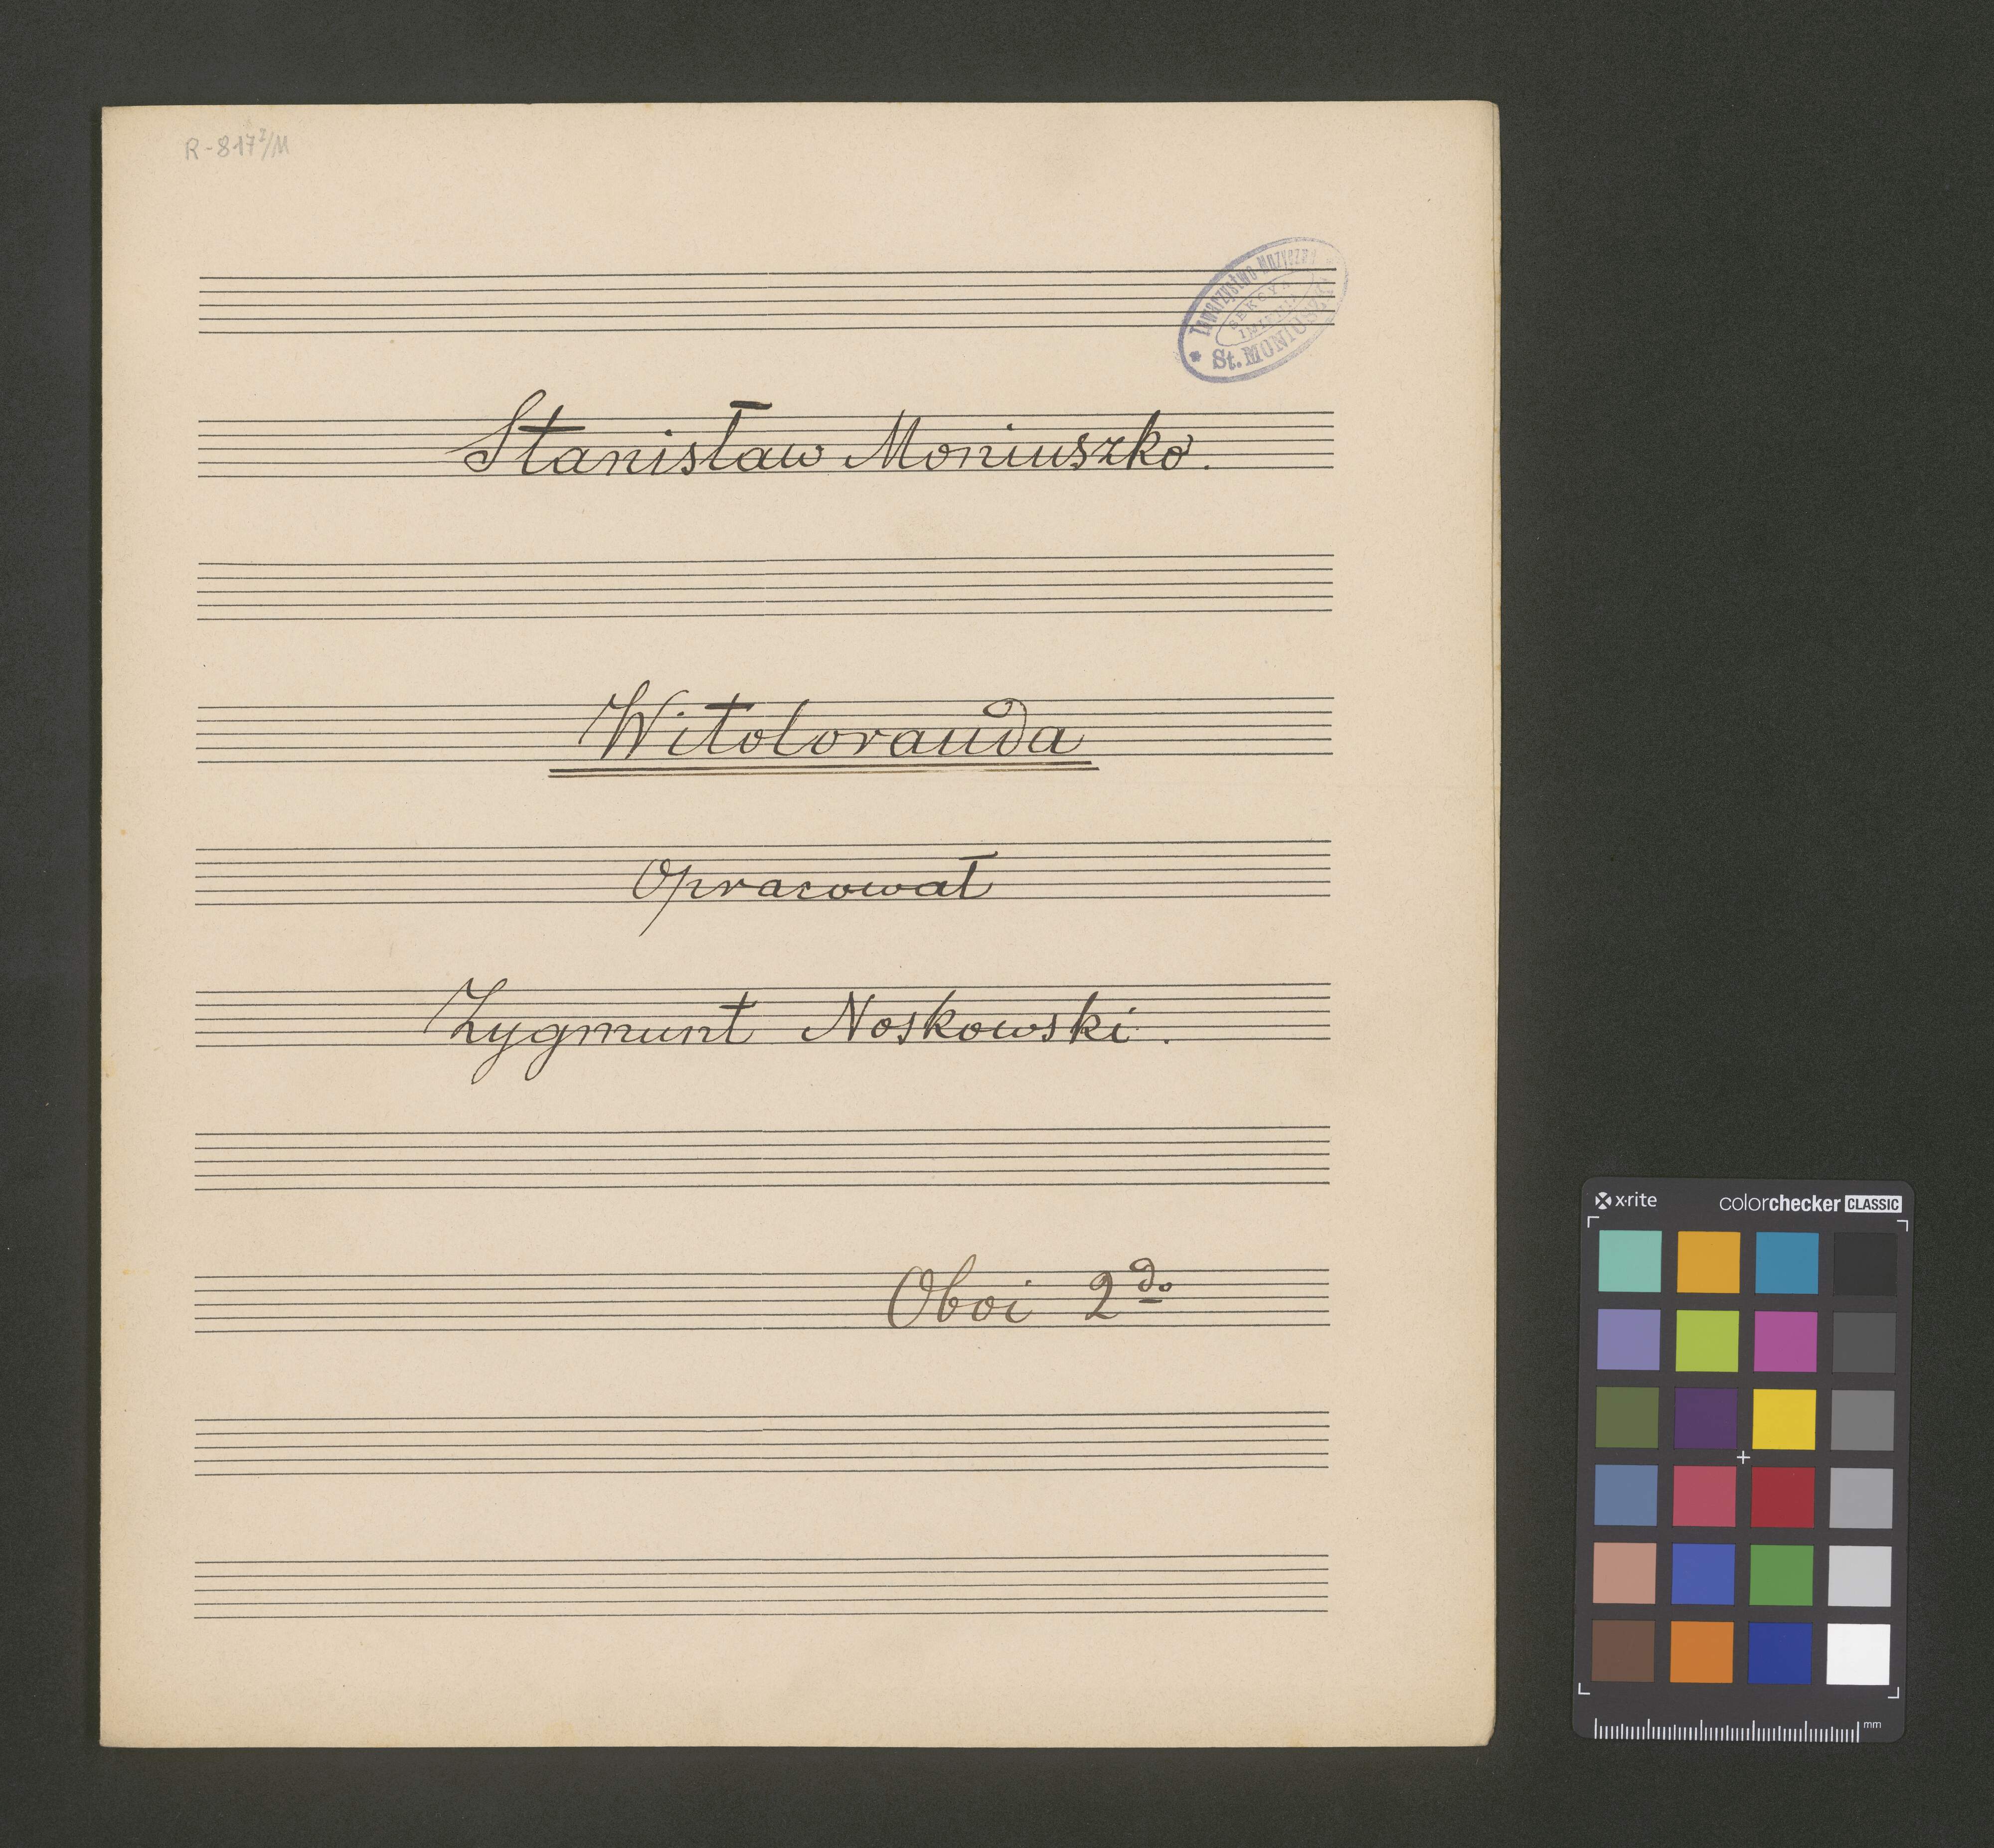 R-817 I/M
Towarzystwo Muzyczne
SEKCYA
IMIENIA
* St. MONIUSZKI
Stanisław Moniuszko.
Witolorauda
Opracował
Zygmunt Noskowski.
Oboi 2do
x-rite
colorchecker CLASSIC
mm